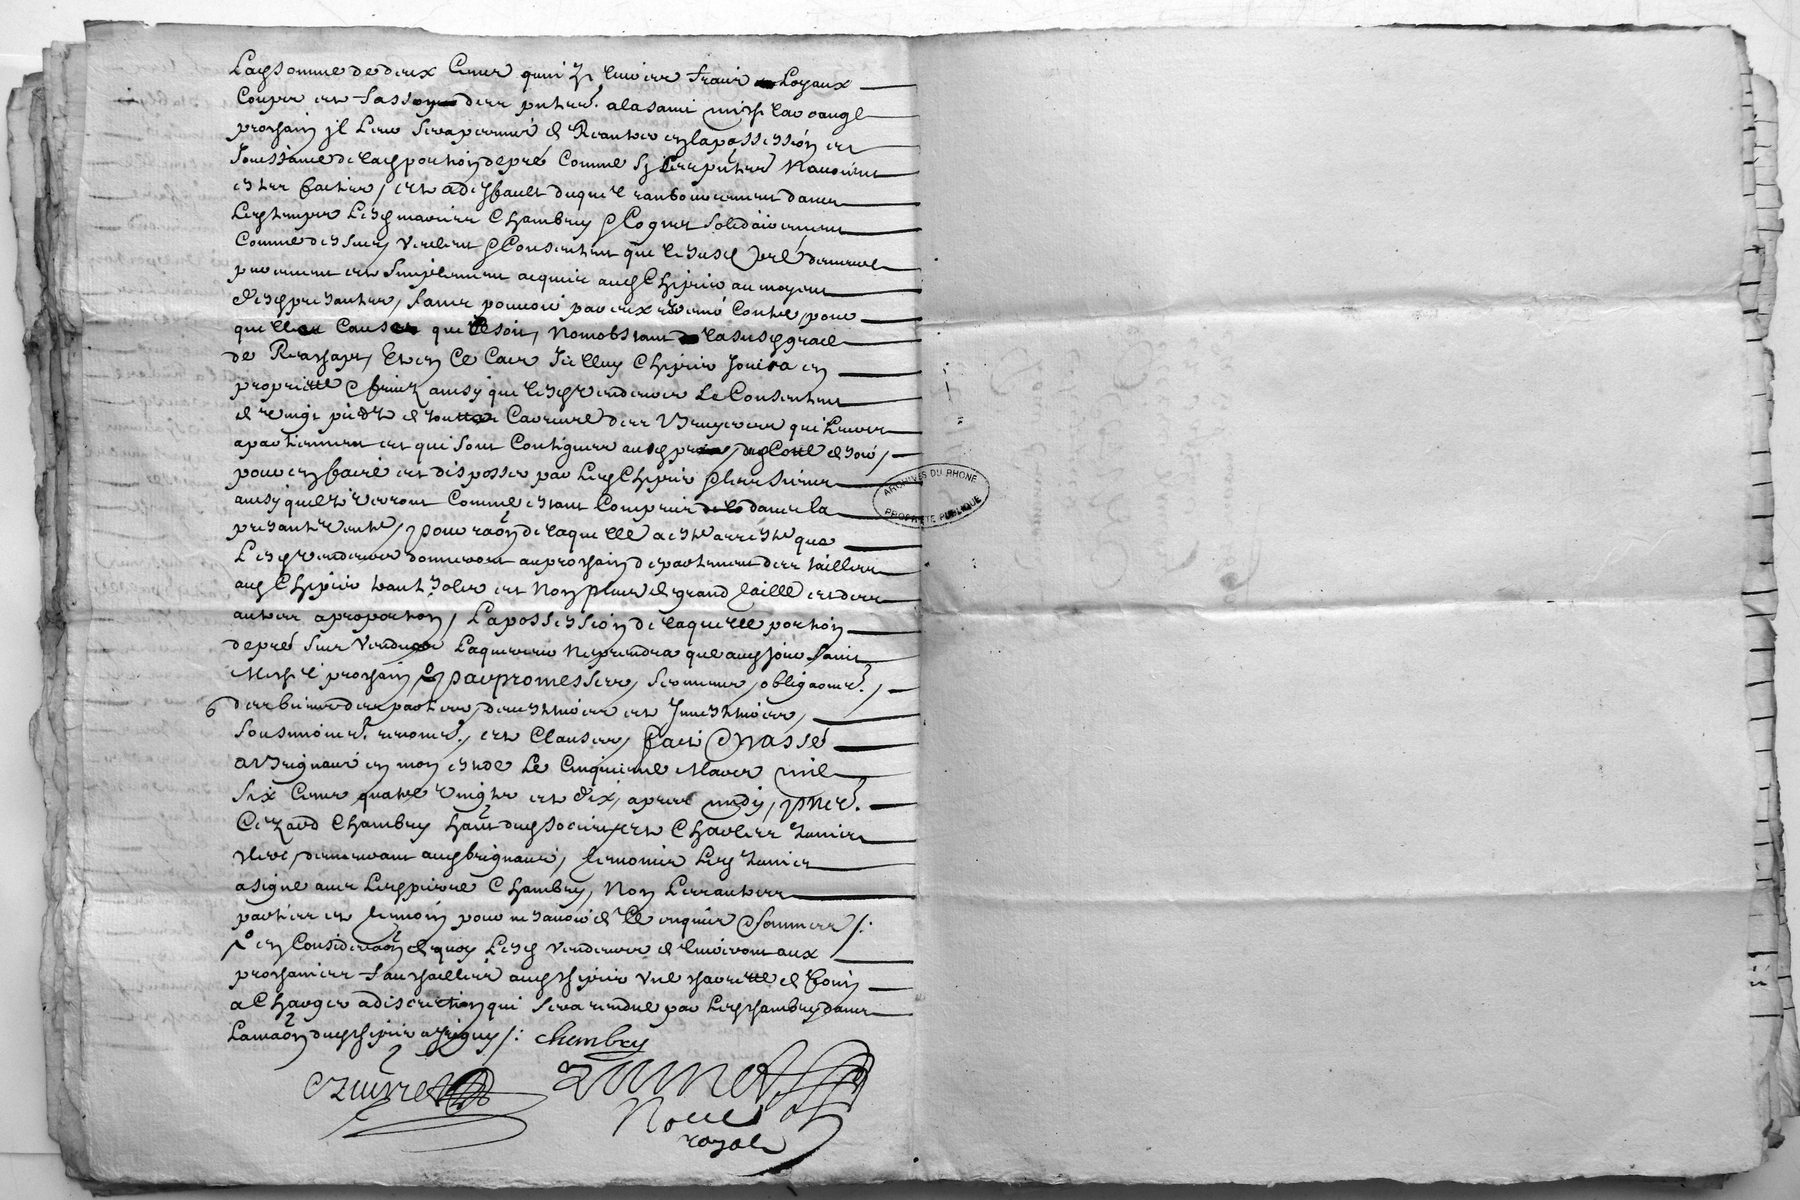 Lad somme de deux Cents quinze livres frais Loyaux
Couptz et fassons des pntes. a la saint michel archange
prochain jl Leur sera permis de Reantrer en la possession et
Jouissance de lad portion de pré Comme sy Les pntes Navoient
estez faictes, et a deffault duquel ranboursement dans
Led temps Lesd mariez Chambry & Cognet solidairement
Comme dessus veulent & Consentent que le susd pré demeure
purement et simplement acquis aud Chipier au moyen
desd presantes, sans pouvoir par eux revenir Contre, pour
quelle Cause que ce soit, Nonobstant la susd grace
de Reachapt, Et en Ce Cas Icelluy Chipier Jouira en
propriette & fruictz ainsy que lesd vendeurs Le Consentent
de vingt piedz de toutte Carrure des Bruyeres qui Leurs
apartiennent et qui sont Contigues aud pré, du Cotté de soir,
pour en faire et disposser par Led Chipier & les siens
ainsy quelz verront Comme estant Compris dans la
presant vente, pour raon de laquelle a este arresté que
Lesd vendeurs donneront au prochain departement des tailles
aud Chipier trante solz et Non plus de grand taille et des
autres a proportion, La possession de laquelle portion
de pré sus vendue Lacquereur Ne prendra que aud jour saint
Michel prochain par promesses, sermens, obligaons.,
des biens des parties, devestitures et Investitures,
soubmions. renons., et Clauses, faict & Passé
a Brignais en mon estude Le Cinquieme Mars mil
six Cens quatre vingts et dix, apres midy, pnts.
Cezard Chambry habt dud Soucieu et Charles Zanier
Clerc, demeurant aud brignais, temoins Led Zanier
a signé avec Led pierre Chambry, Non Les autres
parties et temoin pour ne scavoir de Ce enquis & sommes /:
en Consideraon de quoy Lesd vendeurs delivreront aux
prochaines fauchailles aud Chipier une charette de foin
a Charger a discretion qui sera rendue par Led Chambry dans
La maon dud Chipier a Irigny /: chembry
Nore
royal
ARCHIVES DU RHONE
PROPRIÉTÉ PUBLIQUE